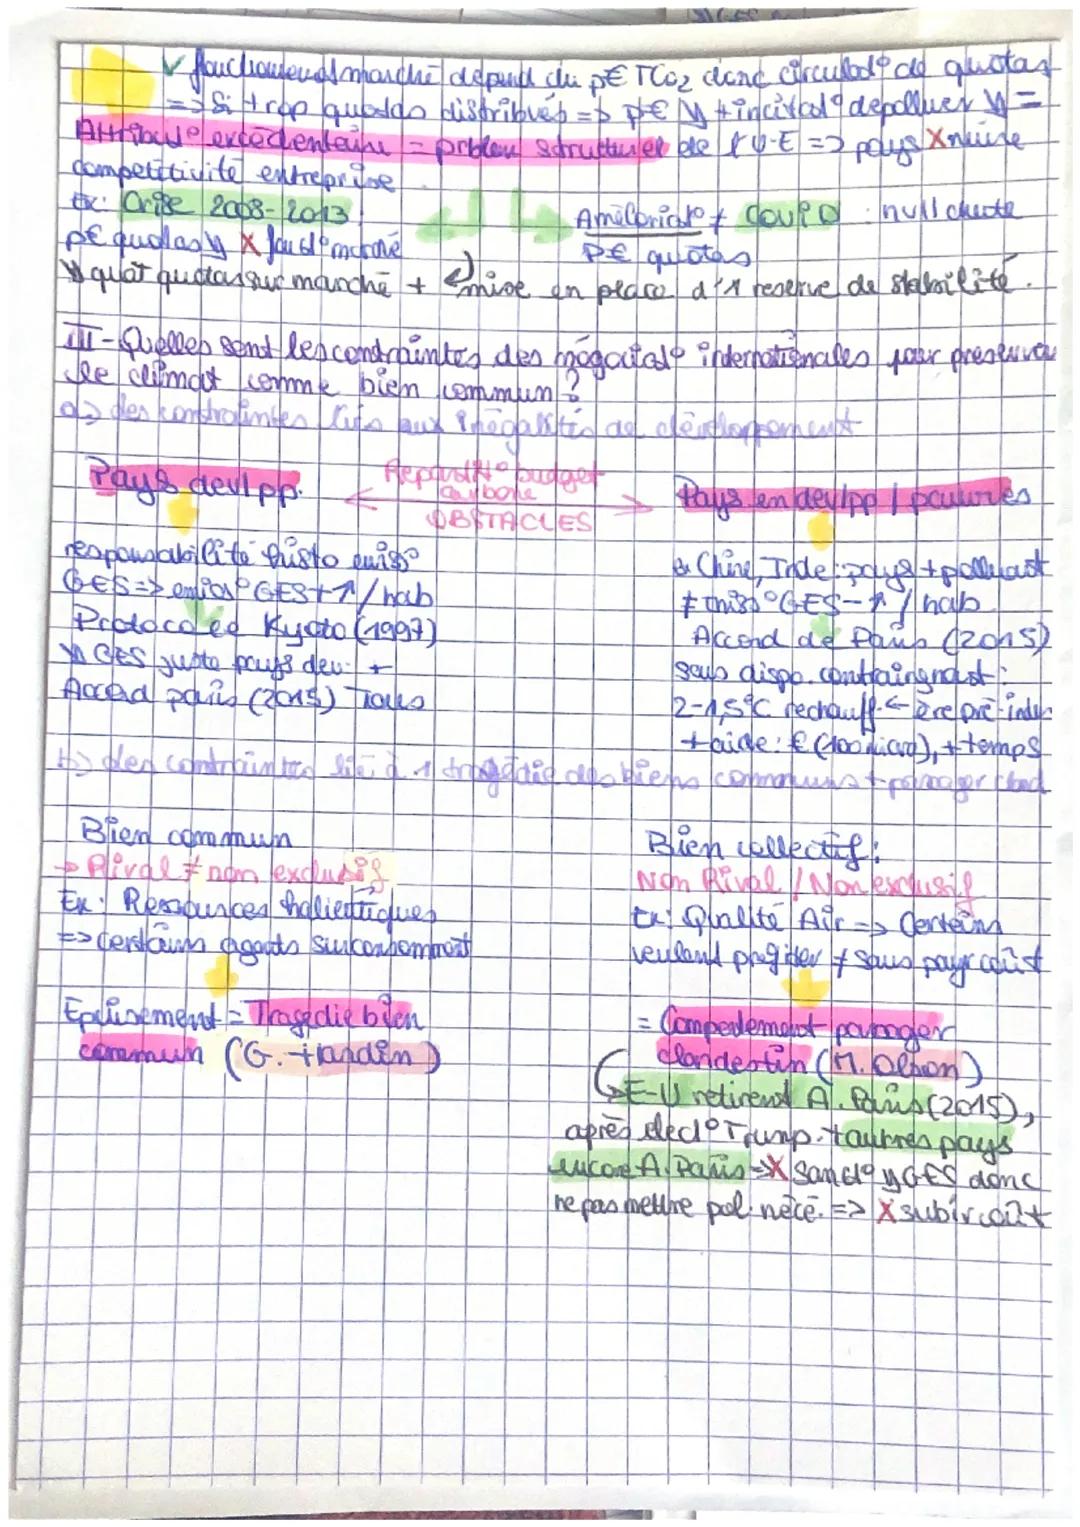 fonctionnement marché dépend du p€ TCO2 donc circulat° de quotas
=> Si trop quotas distribués => p€ ↘ + incitat° dépolluer ↘ =
Attribut° excédentaire = problem structurel de l'U-E => pays X nuire
compétitivité entreprise
Ex: Crise 2008-2013
p€ quotas ↘ X fonct° marché
↘ quat quotas sur marché +
Améliorat° ≠ COVID : null chute
P€ quotas
mise en place d'1 reserve de stabilité.
III - Quelles sont les contraintes des négociat° internationales pour préserver
le climat comme bien commun ?
a) des contraintes liés aux inégalités de développement
Pays devlpp.
Répartit° budget
carbone
OBSTACLES
Pays en devlpp / pauvres
responsabilité histo émiss°
GES => emiss° GES + ↑ / hab
Protocole Kyoto (1997)
↘ GES juste pays dev. +
Accord paris (2015) Tous
Ex Chine, Inde : pays + polluant
≠ émiss° GES - ↑ / hab
Accord de Paris (2015)
sans dispo. contraingnant :
2-1,5°C rechauff. ← ère pré-indus
+ aide : € (100 milliard), + temps
b) des contraintes lié à 1 tragédie des biens communs + passager cland
Bien commun
→ Rival ≠ non exclusif
Ex : Ressources halieutiques
=> certains agents surconsomment
Epuisement = Tragédie bien
commun (G. Hardin)
Bien collectif :
Non Rival / Non exclusif
Ex : Qualité Air => Certains
veulent profiter ≠ sans payer coût
= Comportement passager
clandestin (M. Olson)
E-U retirent A. Paris (2015),
après élect° Trump. + autres pays
encore A. Paris => X sanct° ↘ GES donc
ne pas mettre pol. néce. => X subir coût